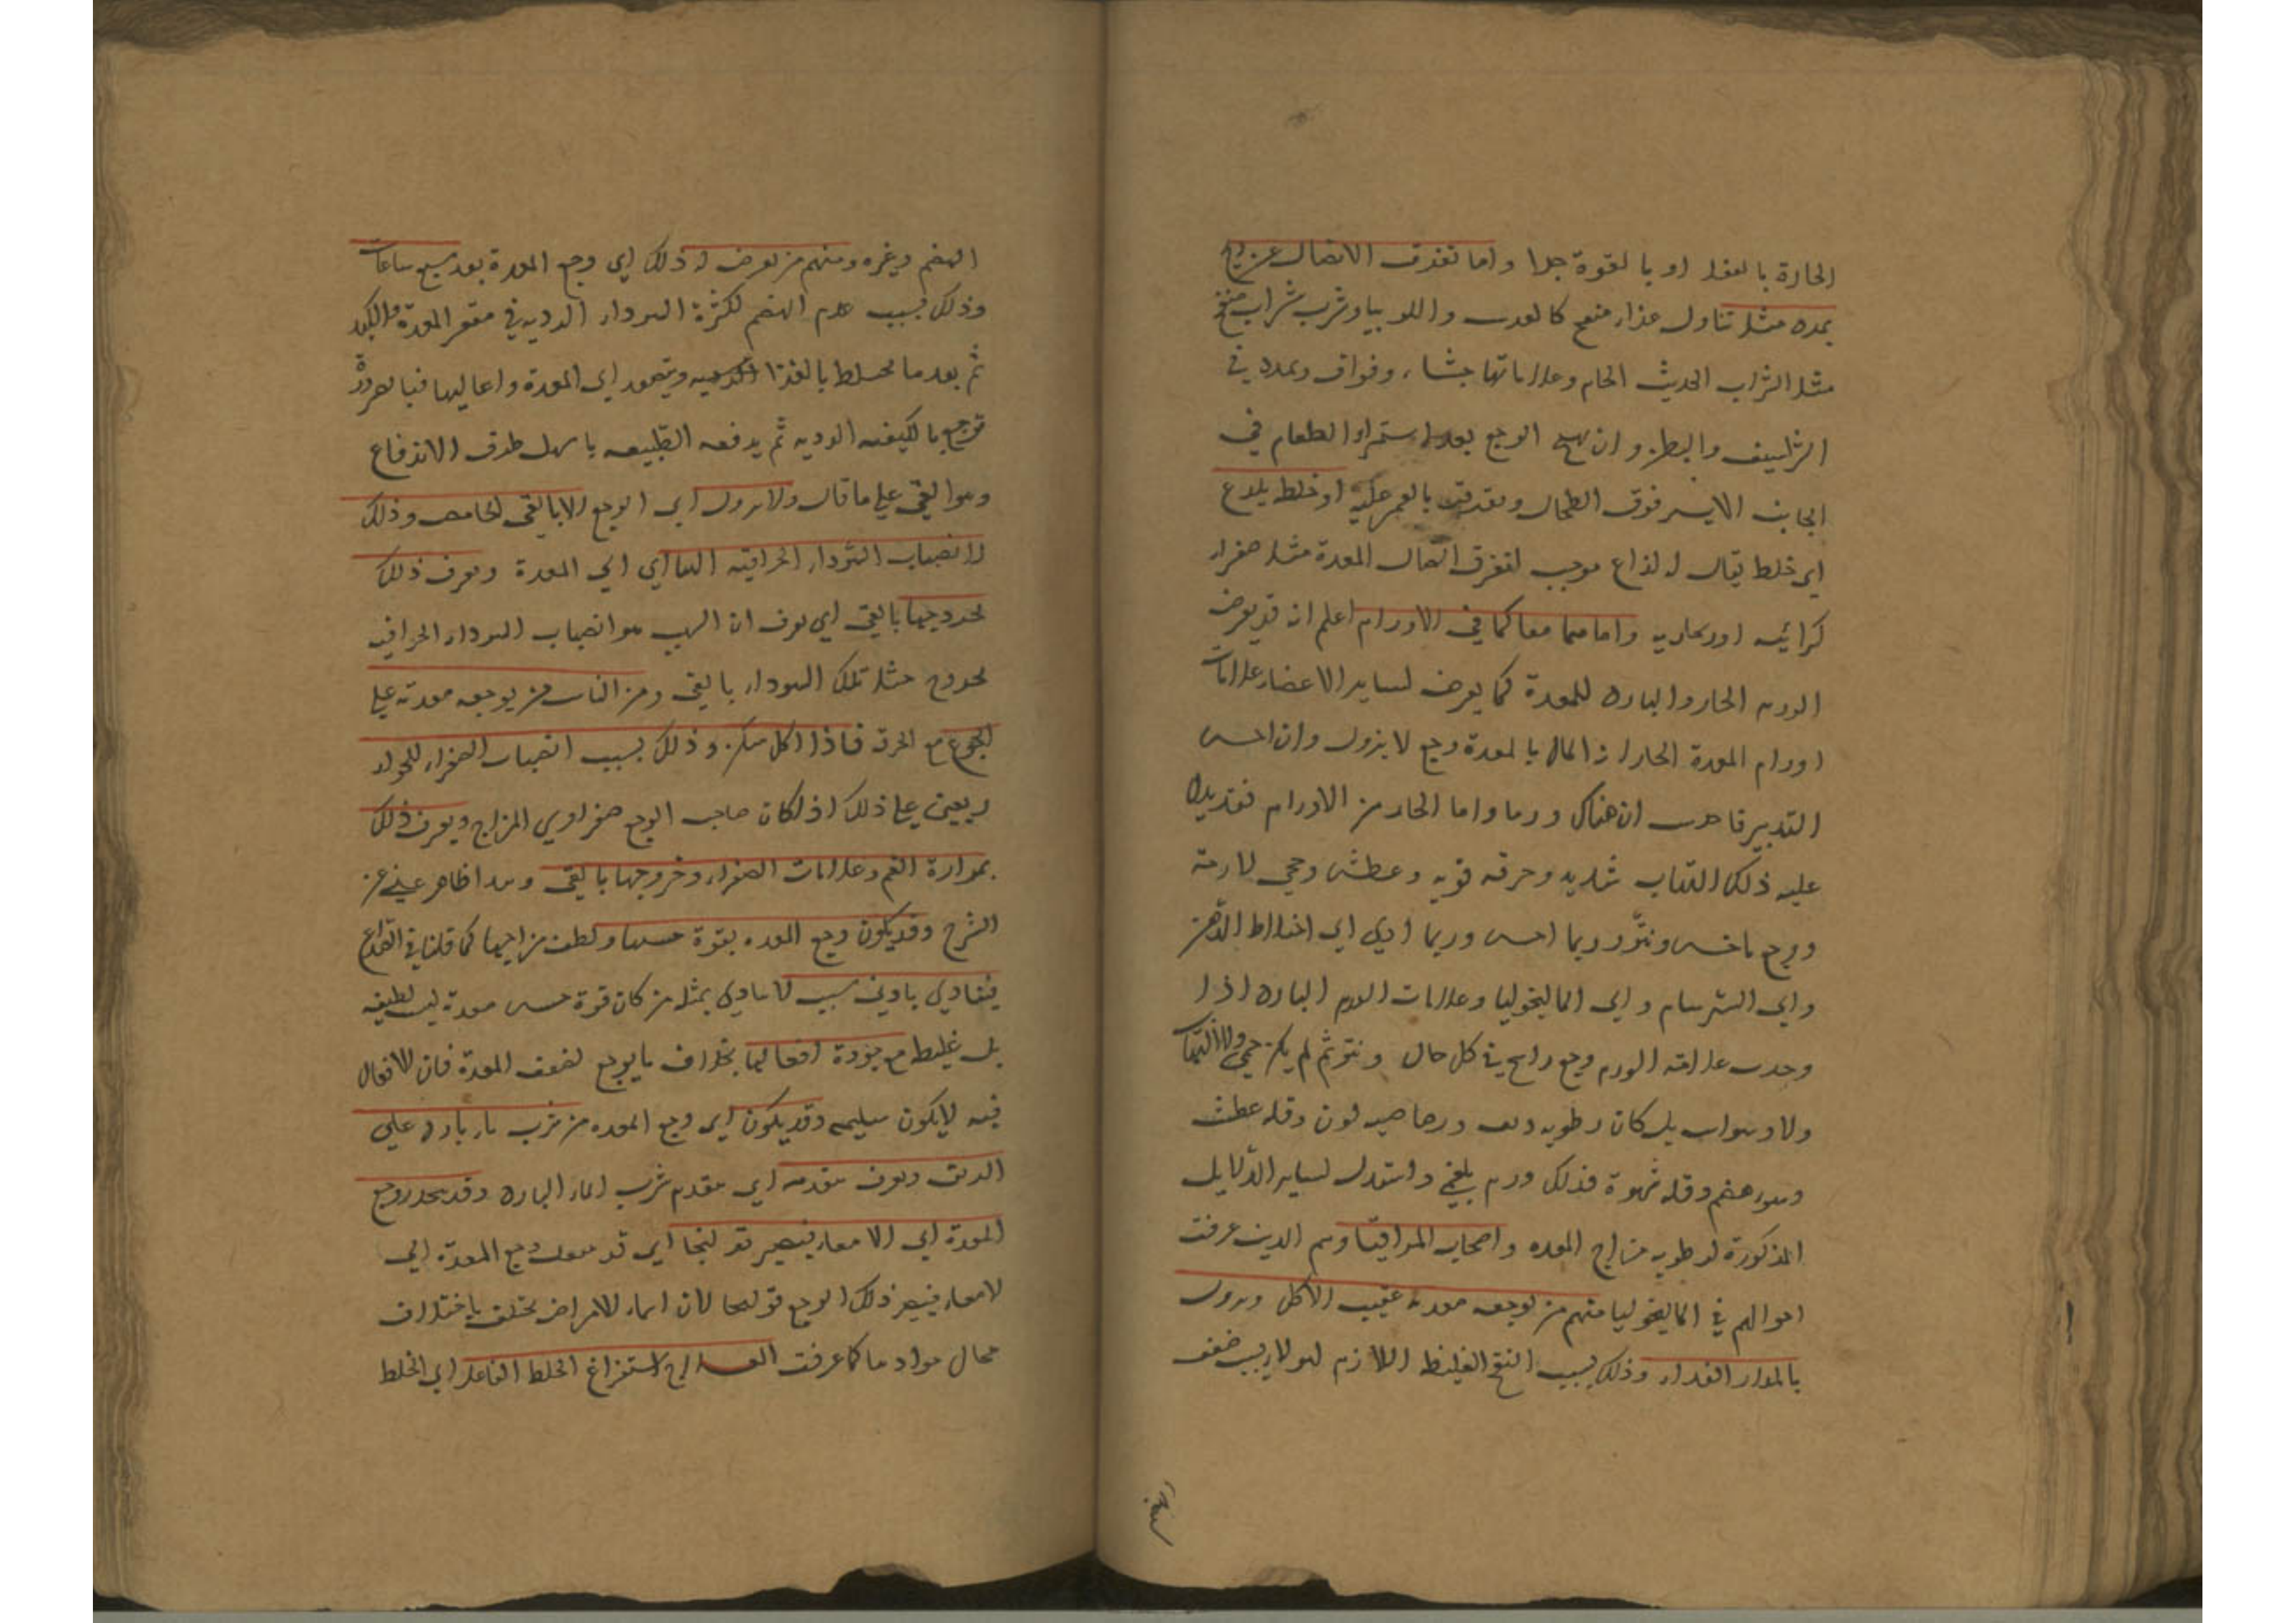 الحارة بالفعل او بالقوة جدا واما تفرق الاتصال عن ريح
ممدده مثل تناول غذاء منفخ كالعدس واللوبيا وشرب شراب منفخ
مثل الشراب الحديث الخام وعلاماتها جشاء وفواق وتمدد في
الشراسيف والبطن وان يهيج الوجع بعد استمراء الطعام في
الجانب الايسر فوق الطحال بالغمز عليه او خلط يلدع
اي خلط يقال له لذاع موجب لتفرق اتصال المعدة مثل صفراء
كراثيه او زنجاريه واما هما معا كما في الاورام اعلم ان قد يعرض
الورم الحار والبارد للمعدة كما يعرض لساير الاعضاء علامات
اورام المعدة الحارة اذا طال بالمعدة وجع لا يزول وان احسن
التدبير فاحدس ان هناك ورما واما الحار من الاورام فقد يدل
عليه ذلك التهاب شديد وحرقه قويه وعطش وحمي لازمة
ووجع ناخس ونتؤ وربما احس وربما ادي الي اختلاط الذهن
والي السرسام والي الماليخوليا وعلامات الورم البارد اذا
وجدت علامته الورم وجع راسخ في كل حال ونتؤ ثم لم يكن حمي ولا التهاب
ولا وسواس بل كان رطوبه ريق ورصاصيه لون وقلة عطش
وسوء هضم وقله شهوة فذلك ورم بلغمي واستدل لساير الدلايل
المذكورة لرطوبه مزاج المعده واصحاب المراقيا وهم الذين عرفت
احوالهم في الماليخوليا منهم من يوجعه معدته عقيب الاكل ويزول
بانحدار الغذاء وذلك بسبب النفخ الغليظ اللازم لهولاء بسبب ضعف
الهضم وغيره ومنهم من يعرض له ذلك اي وجع المعدة بعد سبع ساعات
وذلك بسبب عدم الهضم لكثرة السوداء الرديه في مقعر المعدة والكبد
ثم بعد ما يختلط بالغذا ويتصعد الي المعدة واعاليها فبالضرورة
توجع بالكيفيه الرديه ثم يدفعه الطبيعه باسهل طرق الاندفاع
وهو القي علي ما قال ولا يزول اي الوجع الا بالقي الحامض وذلك
لانصباب السوداء الحراقيه اليها اي الي المعدة ويعرف ذلك
بخروجها بالقي اي يعرف ان السبب هو انصباب السوداء الحراقيه
بخروج مثل تلك السوداء بالقي ومن الناس من يوجعه معدته علي
الجوع مع الحرقة فاذا اكل سكن وذلك بسبب انصباب الصفراء للخواء
ويعين علي ذلك اذا كان صاحب الوجع صفراوي المزاج ويعرف ذلك
بمرارة الفم وعلامات الصفراء وخروجها بالقي وهذا ظاهر غني عن
الشرح وقد يكون وجع المعده بقوة حسها ولطف مزاجها كما قلنا في الصداع
فيتاذي بادني سبب لا يتاذي بمثله من كان قوة حس معدة ليس لطيفه
بل غليظ مع جودة افعالها بخلاف ما يوجع لضعف المعدة فان الافعال
فيه لا يكون سليمه وقد يكون اي وجع المعده من شرب ماء بارد علي
الريق ويعرف بتقدمه اي بتقدم شرب الماء البارد وقد ينحدر وجع
المعدة الي الامعاء فيصير قولنجا اي قد ينتقل وجع المعدة الي
الامعاء فيصير ذلك الوجع قولنجا لان اسماء الامراض تختلف باختلاف
محال موادها كما عرفت العلاج استفراغ الخلط الفاعل اي الخلط